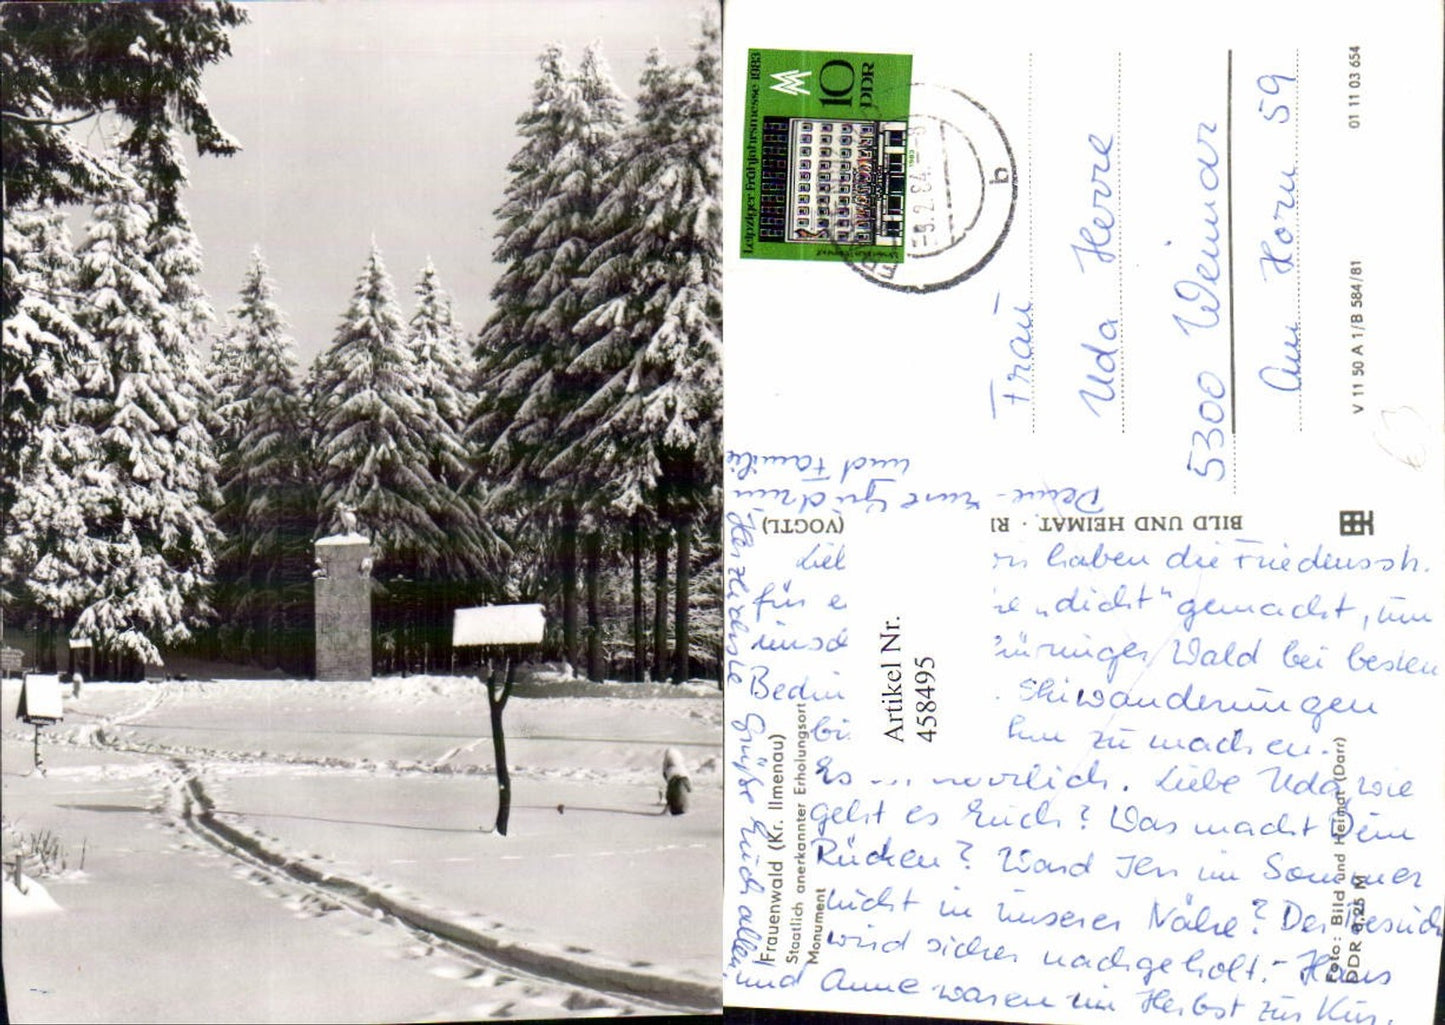 Leipziger Frühjahrsmesse 1983
10
DDR
-9.2.84
b
Frau
Uda Herre
5300 Weimar
Am Horn 59
01 11 03 654
V 11 50 A 1/B 584/81
BILD UND HEIMAT
(VOGTL)
Artikel Nr.
458495
Frauenwald (Kr. Ilmenau)
Staatlich anerkannter Erholungsort
Monument
Foto: Bild und Heimat (Darr)
DDR 0,25 M
haben die Friedensstr.
für e "dicht" gemacht, um
Wald bei besten
Bedin Skiwanderungen
zu machen.
Es Liebe Uda wie
geht es Euch? Was macht Dein
Rücken? Ward Ihr im Sommer
nicht in unserer Nähe? Der Besuch
wird sicher nachgeholt.- Hans
und Anne waren im Herbst zur Kur.
Herzlichste Grüße Euch allen
und Familie